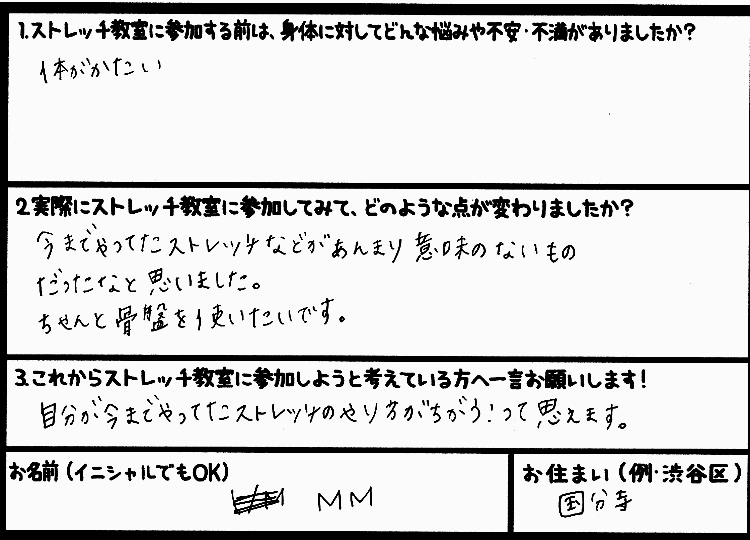 1.ストレッチ教室に参加する前は、身体に対してどんな悩みや不安・不満がありましたか?
体がかたい
2.実際にストレッチ教室に参加してみて、どのような点が変わりましたか?
今までやってたストレッチなどがあんまり意味のないもの
だったなと思いました。
ちゃんと骨盤を使いたいです。
3.これからストレッチ教室に参加しようと考えている方へ一言お願いします!
自分が今までやってたストレッチのやり方がちがう!って思えます。
お名前(イニシャルでもOK)
MM
お住まい(例・渋谷区)
国分寺